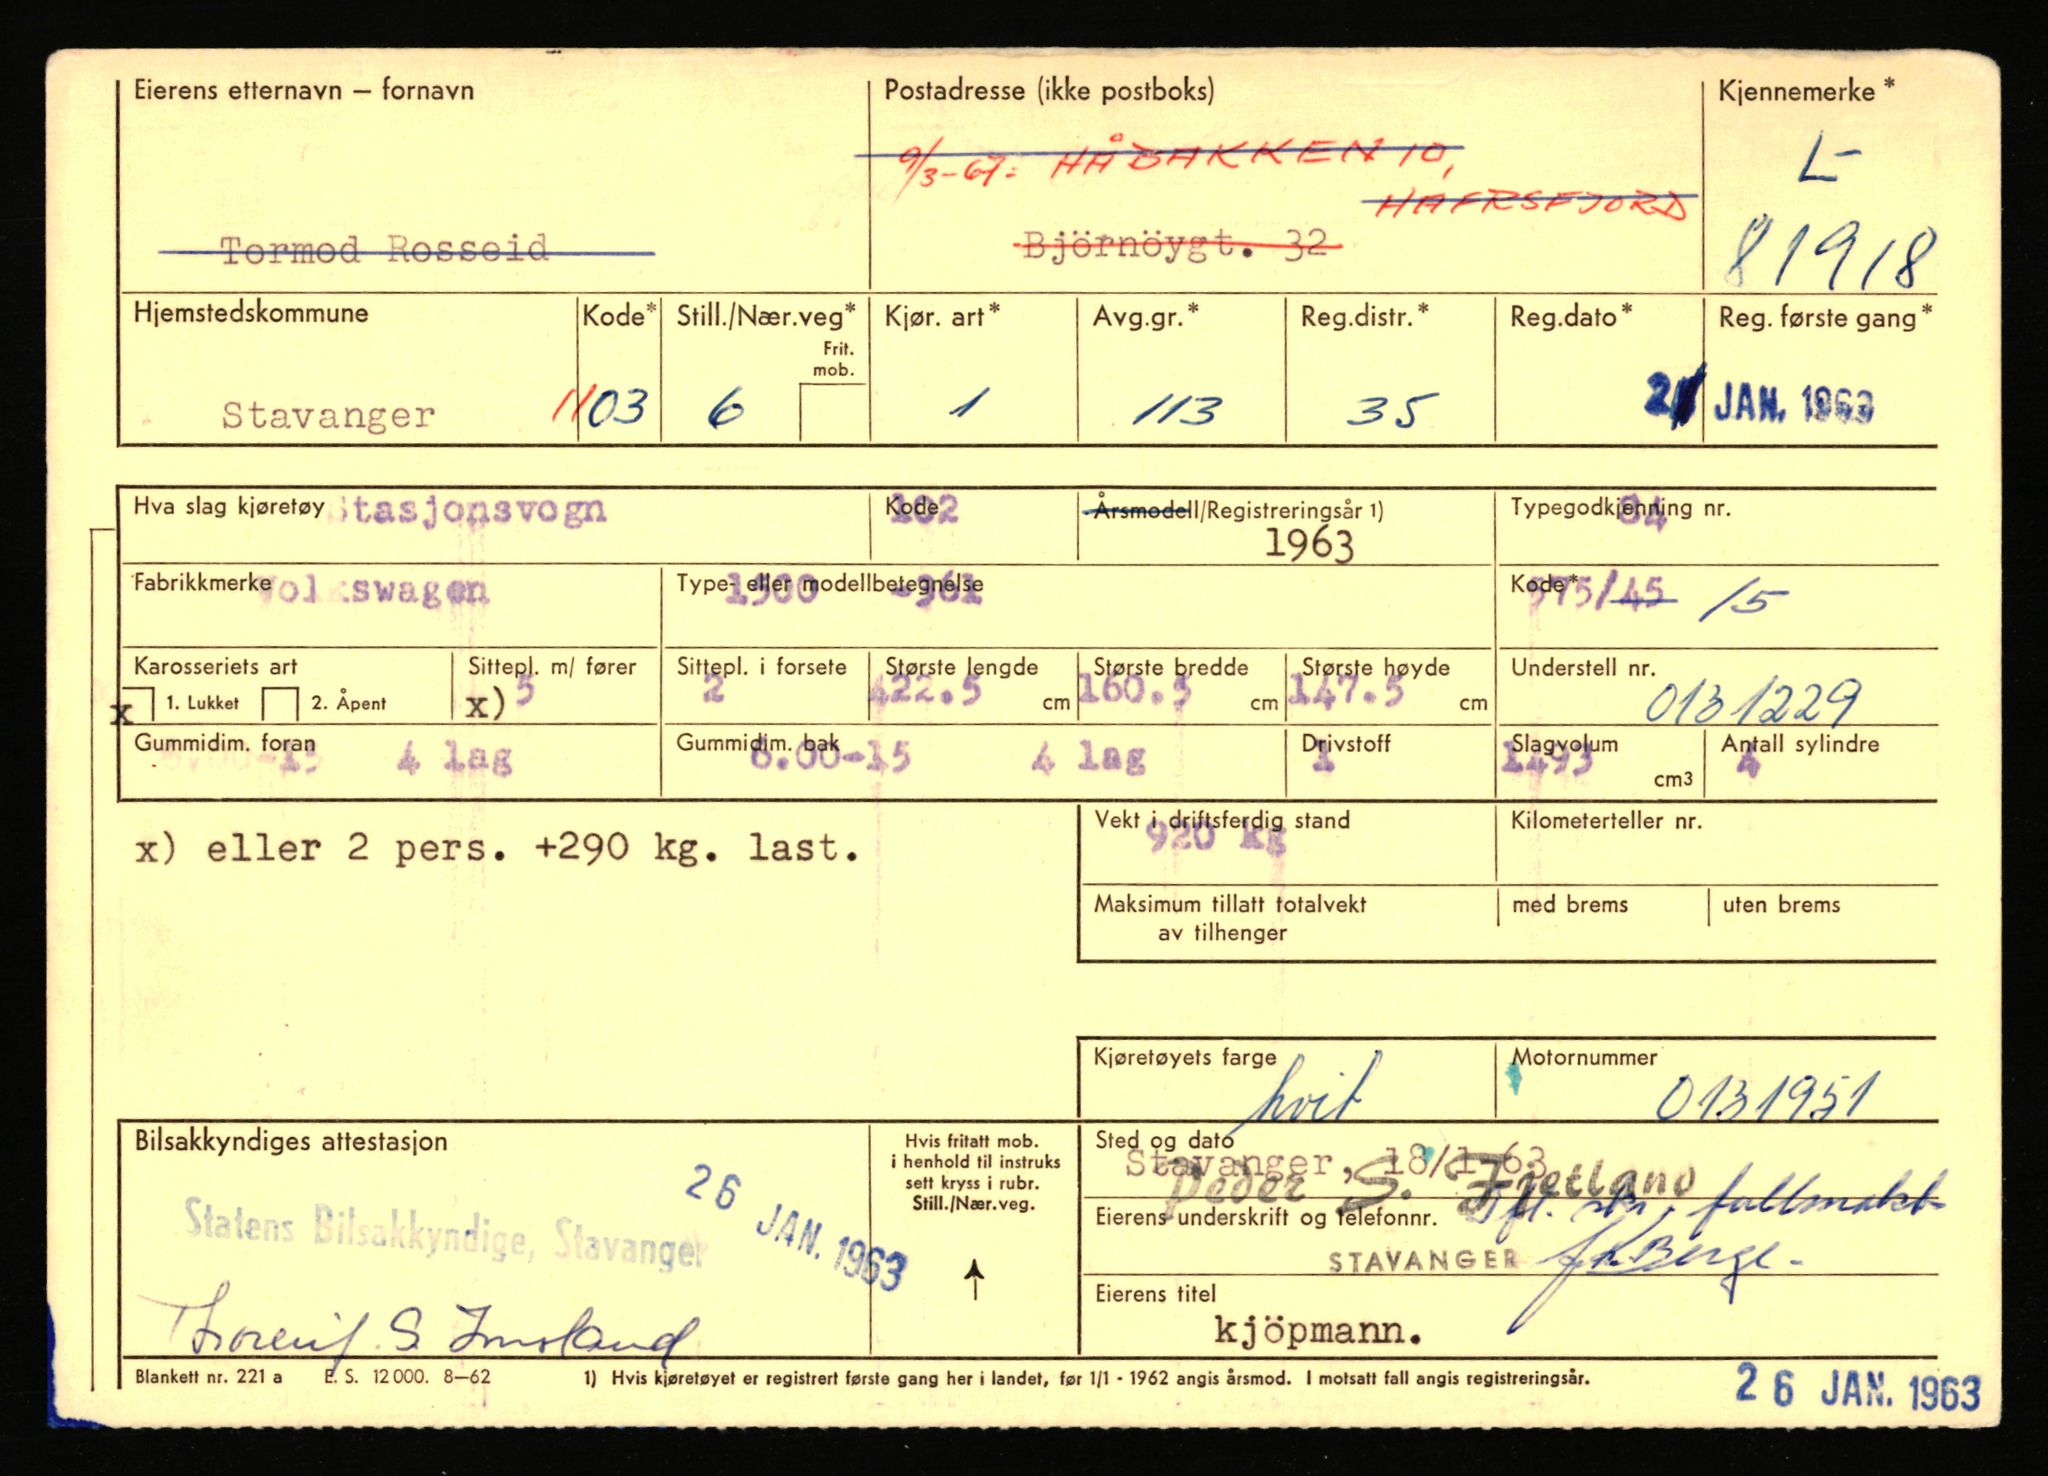 Eierens etternavn – fornavn
Postadresse (ikke postboks)
Kjennemerke*
9/3-67: HÅBAKKEN 10,
HAFRSFJORD
L-
81918
Tormod Rosseid
Björnöygt. 32
Hjemstedskommune
Kode*
Still./Nær.veg*
Frit. mob.
Kjør. art*
Avg.gr.*
Reg.distr.*
Reg.dato*
Reg. første gang*
Stavanger
1103
6
1
113
35
JAN. 1963
Hva slag kjøretøy Stasjonsvogn
Kode 102
Årsmodell/Registreringsår 1)
1963
Typegodkjenning nr.
84
Fabrikkmerke Volkswagen
Type- eller modellbetegnelse
1500 -361
Kode* 575/45 15
Karosseriets art
x 1. Lukket 2. Åpent
Sittepl. m/ fører
x) 5
Sittepl. i forsete
2
Største lengde
422.5 cm
Største bredde
160.5 cm
Største høyde
147.5 cm
Understell nr.
0131229
Gummidim. foran
6.00-15 4 lag
Gummidim. bak
6.00-15 4 lag
Drivstoff
1
Slagvolum
1493 cm3
Antall sylindre
4
x) eller 2 pers. +290 kg. last.
Vekt i driftsferdig stand
920 kg
Kilometerteller nr.
Maksimum tillatt totalvekt
av tilhenger
med brems
uten brems
Kjøretøyets farge
hvit
Motornummer
0131951
Bilsakkyndiges attestasjon
26 JAN. 1963
Statens Bilsakkyndige, Stavanger
Hvis fritatt mob.
i henhold til instruks
sett kryss i rubr.
Still./Nær.veg.
Sted og dato
Stavanger, 18/1-63
Peder S. Fjetland
Eierens underskrift og telefonnr.
fullmakt
STAVANGER
Berge.
Eierens titel
kjöpmann.
S Imsland
Blankett nr. 221 a E. S. 12 000. 8–62
1) Hvis kjøretøyet er registrert første gang her i landet, før 1/1 - 1962 angis årsmod. I motsatt fall angis registreringsår.
26 JAN. 1963